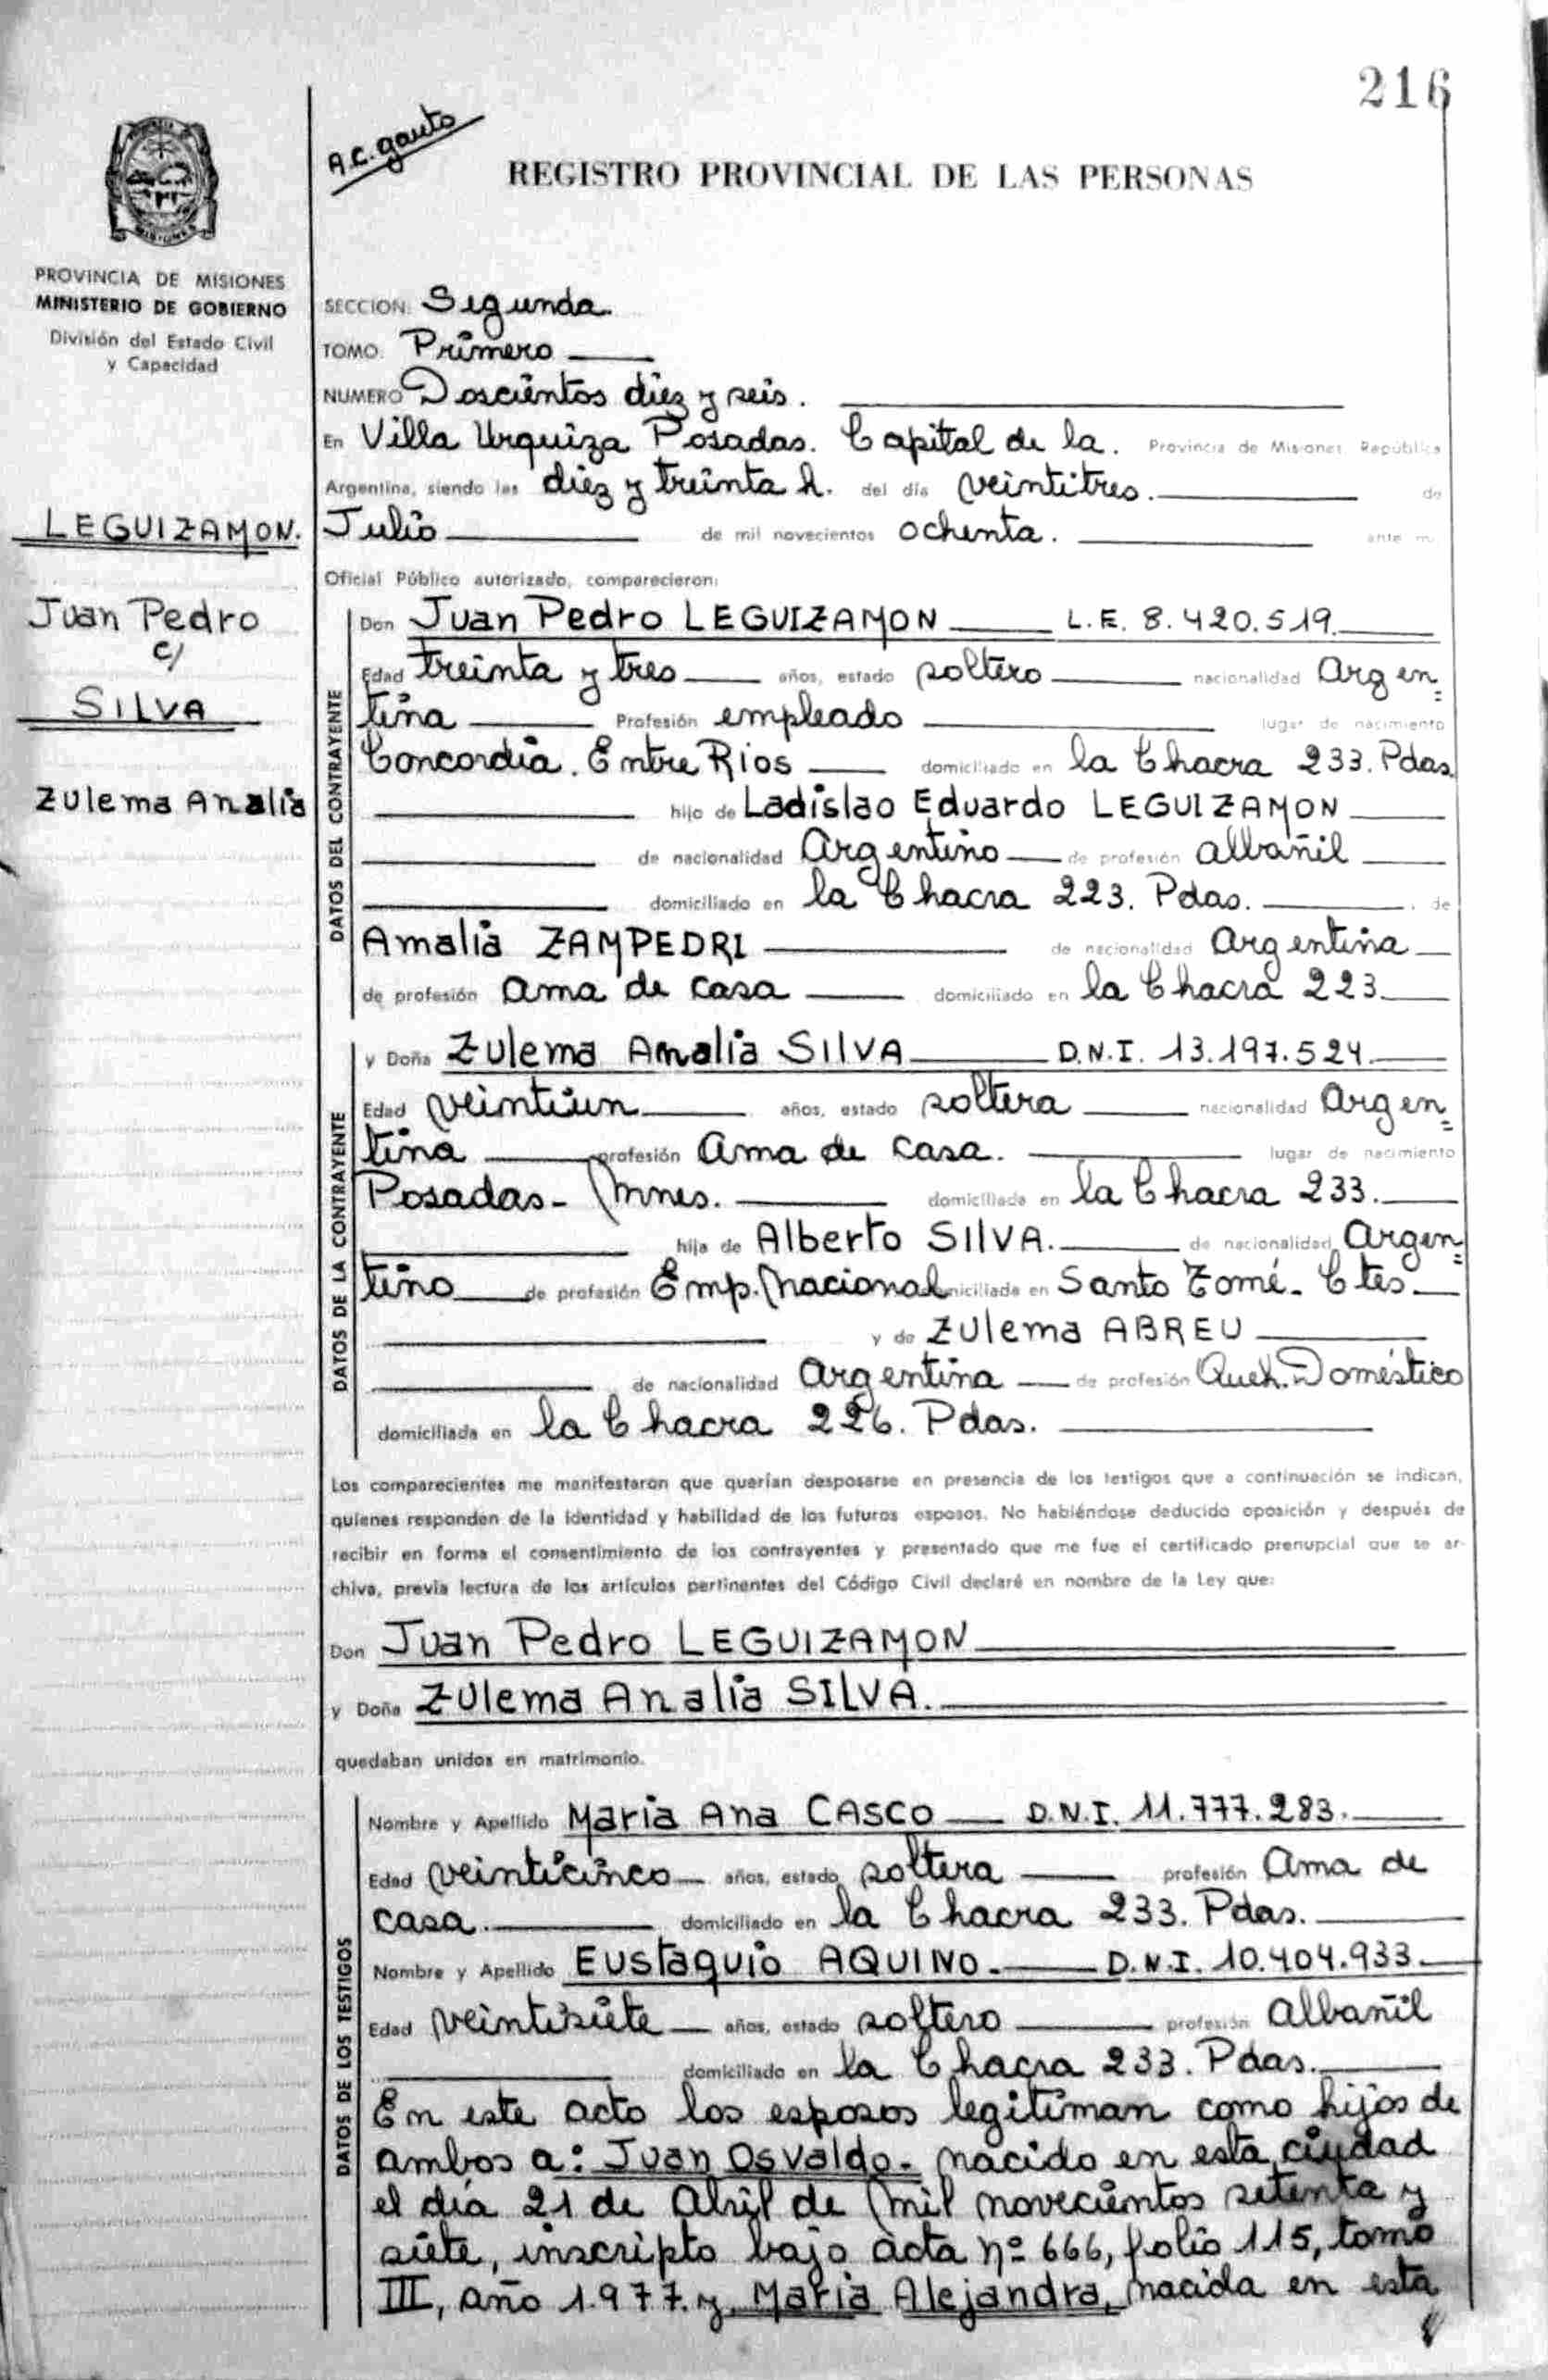 216
A.C. gauto
REGISTRO PROVINCIAL DE LAS PERSONAS
PROVINCIA DE MISIONES
MINISTERIO DE GOBIERNO
División del Estado Civil
y Capacidad
LEGUIZAMON.
Juan Pedro
c/
SILVA
Zulema Analia
SECCION: Segunda.
TOMO: Primero
NUMERO Doscientos diez y seis.
En Villa Urquiza Posadas. Capital de la. Provincia de Misiones República
Argentina, siendo las diez y treinta h. del día veintitres. de
Julio de mil novecientos ochenta. ante mi
Oficial Público autorizado, comparecieron:
DATOS DEL CONTRAYENTE
Don Juan Pedro LEGUIZAMON L.E. 8.420.519.
Edad treinta y tres años, estado soltero nacionalidad Argen=
tina Profesión empleado lugar de nacimiento
Concordia. Entre Rios domiciliado en la Chacra 233. Pdas.
hijo de Ladislao Eduardo LEGUIZAMON
de nacionalidad Argentino de profesión albañil
domiciliado en la Chacra 223. Pdas. de
Amalia ZAMPEDRI de nacionalidad Argentina
de profesión Ama de casa domiciliado en la Chacra 223.
DATOS DE LA CONTRAYENTE
y Doña Zulema Analia SILVA D.N.I. 13.197.524.
Edad veintiun años, estado soltera nacionalidad Argen=
tina profesión Ama de casa. lugar de nacimiento
Posadas- Mnes. domiciliada en la Chacra 233.
hija de Alberto SILVA. de nacionalidad Argen=
tino de profesión Emp. Nacional miciliada en Santo Tomé. Ctes.
y de Zulema ABREU
de nacionalidad Argentina de profesión Queh. Doméstico
domiciliada en la Chacra 226. Pdas.
Los comparecientes me manifestaron que querían desposarse en presencia de los testigos que a continuación se indican,
quienes responden de la identidad y habilidad de los futuros esposos. No habiéndose deducido oposición y después de
recibir en forma el consentimiento de los contrayentes y presentado que me fue el certificado prenupcial que se ar-
chiva, previa lectura de los artículos pertinentes del Código Civil declaré en nombre de la Ley que:
Don Juan Pedro LEGUIZAMON
y Doña Zulema Analia SILVA.
quedaban unidos en matrimonio.
DATOS DE LOS TESTIGOS
Nombre y Apellido Maria Ana CASCO D.N.I. 11.777.283.
Edad veinticinco años, estado soltera profesión Ama de
casa. domiciliado en la Chacra 233. Pdas.
Nombre y Apellido Eustaquio AQUINO. D.N.I. 10.404.933.
Edad veintisiete años, estado soltero profesión Albañil
domiciliado en la Chacra 233. Pdas.
En este acto los esposos legitiman como hijos de
ambos a: Juan Osvaldo. nacido en esta ciudad
el día 21 de Abril de mil novecientos setenta y
siete, inscripto bajo acta nº 666, folio 115, tomo
III, año 1.977. y Maria Alejandra, nacida en esta